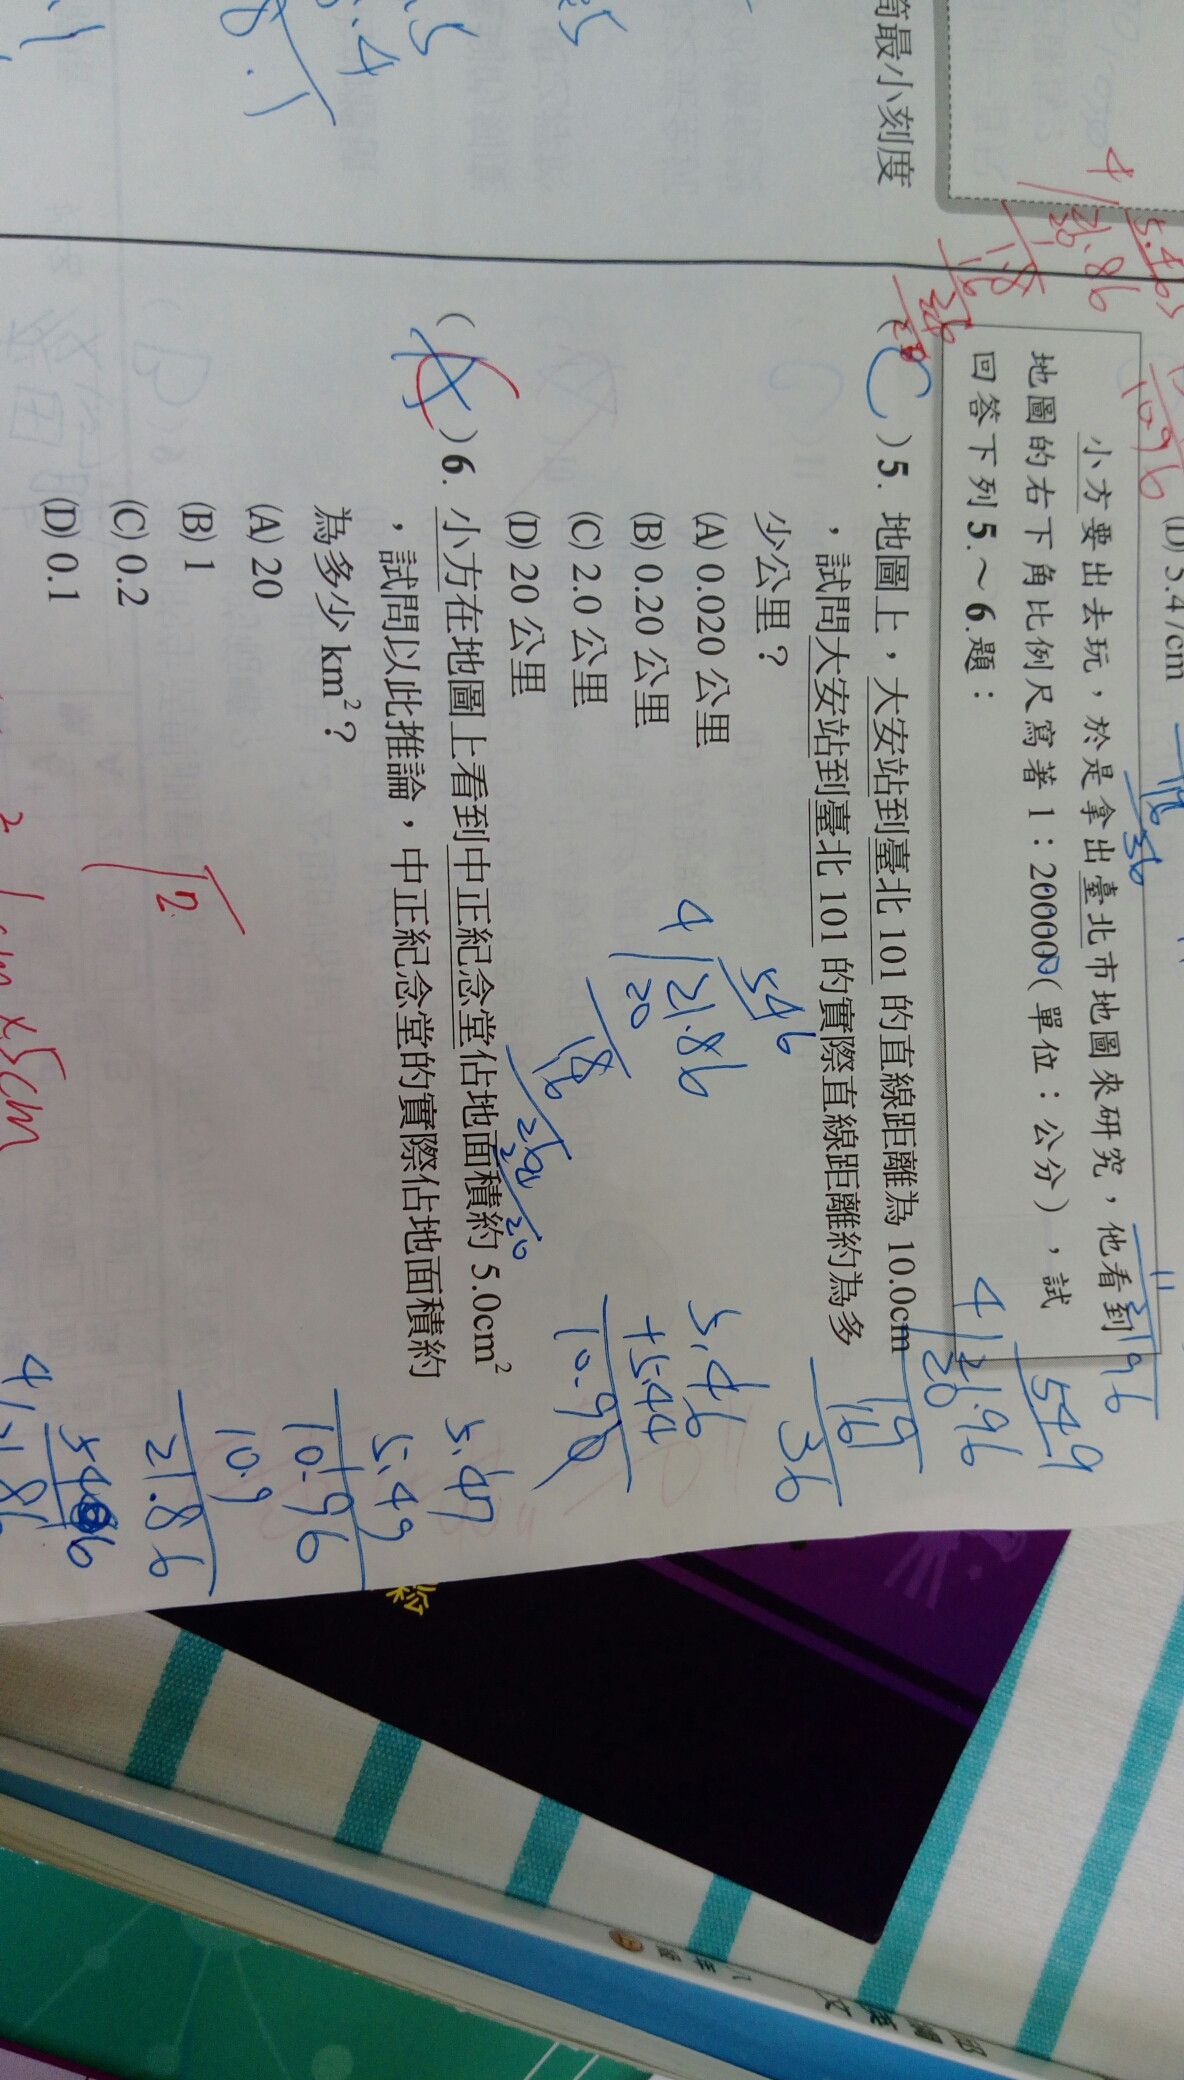 筒最小刻度
(D) 5.47cm
小方要出去玩，於是拿出臺北市地圖來研究，他看到
地圖的右下角比例尺寫著 1：20000(單位：公分)，試
回答下列 5.～6.題：
( C )5. 地圖上，大安站到臺北 101 的直線距離為 10.0cm
，試問大安站到臺北 101 的實際直線距離約為多
少公里？
(A) 0.020 公里
(B) 0.20 公里
(C) 2.0 公里
(D) 20 公里
( )6. 小方在地圖上看到中正紀念堂佔地面積約 5.0cm²
，試問以此推論，中正紀念堂的實際佔地面積約
為多少 km²？
(A) 20
(B) 1
(C) 0.2
(D) 0.1
5.465
4 21.86
20
1.8
16
26
10.96
546
4 21.86
20
18
16
26
20
549
4 21.96
20
19
16
36
5.46
+5.44
5.47
5.49
10.96
10.9
21.86
2
1cm×5cm